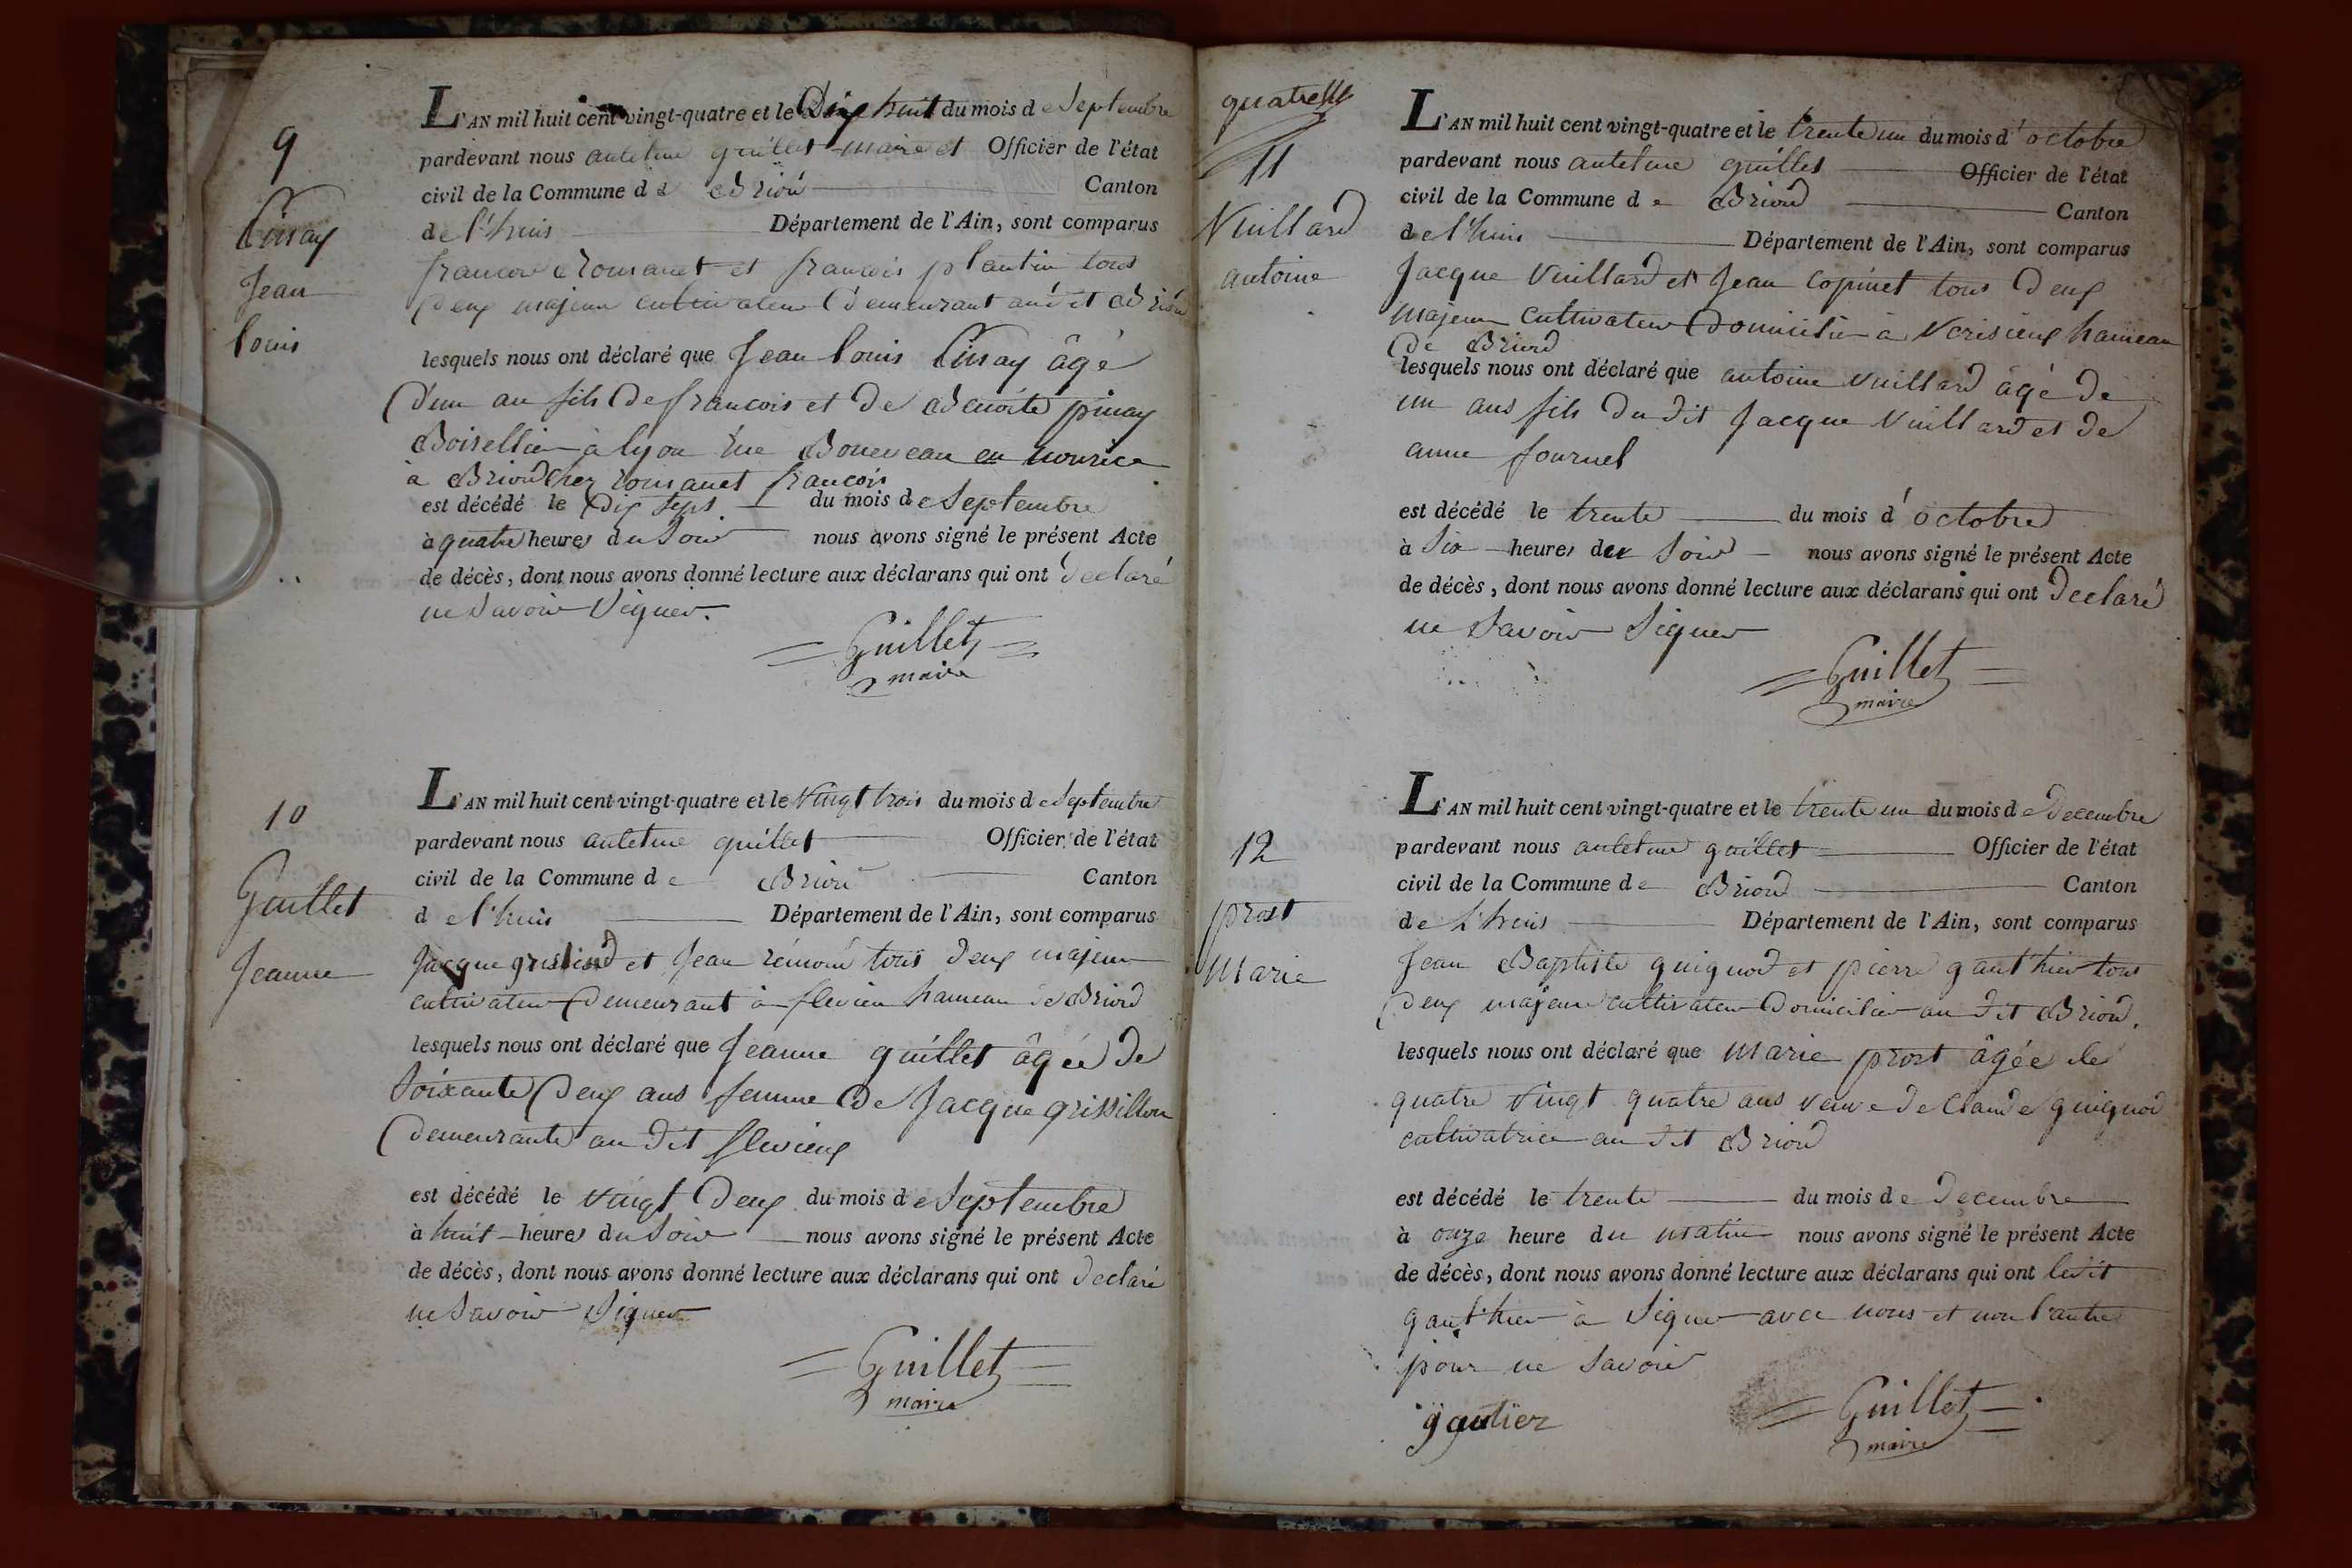 9
Jean
louis
L'AN mil huit cent vingt-quatre et le Dix huit du mois de Septembre
pardevant nous antelme guillet maire et Officier de l'état
civil de la Commune de Briord Canton
de l'huis Département de l'Ain, sont comparus
francois Romanet et francois plantin tous
Deux majeur cultivateur Demeurant au dit Briord
lesquels nous ont déclaré que Jean louis âgé
D'un an fils De francois et de Benoite pinay
Boisellier à lyon rue en nourice
à Briord chez romanet francois
est décédé le Dix sept du mois de Septembre
à quatre heures du Soir nous avons signé le présent Acte
de décès, dont nous avons donné lecture aux déclarans qui ont declaré
ne Savoir Signer.
Guillet
maire
10
Guillet
Jeanne
L'AN mil huit cent vingt-quatre et le vingt trois du mois de Septembre
pardevant nous antelme guillet Officier de l'état
civil de la Commune de Briord Canton
de l'huis Département de l'Ain, sont comparus
Jacque et Jean tous deux majeur
cultivateur Demeurant à flevieu hameau de Briord
lesquels nous ont déclaré que Jeanne guillet âgée de
Soixante Deux ans femme De Jacque grissillon
Demeurante au dit flevieux
est décédé le vingt Deux du mois de Septembre
à huit heures du Soir nous avons signé le présent Acte
de décès, dont nous avons donné lecture aux déclarans qui ont declaré
ne Savoir Signer
Guillet
maire
quatre
11
Vuillard
antoine
L'AN mil huit cent vingt-quatre et le trente un du mois d'octobre
pardevant nous antelme guillet Officier de l'état
civil de la Commune de Briord Canton
de l'huis Département de l'Ain, sont comparus
Jacque Vuillard et Jean Copinet tous Deux
majeur Cultivateur Domicilié à Verisieux hameau
De Briord
lesquels nous ont déclaré que antoine vuillard âgé de
un ans fils Du dit Jacque Vuillard et de
anne fournel
est décédé le trente du mois d'octobre
à Six heures du Soir nous avons signé le présent Acte
de décès, dont nous avons donné lecture aux déclarans qui ont Declaré
ne Savoir Signer
Guillet
maire
12
prost
Marie
L'AN mil huit cent vingt-quatre et le trente un du mois de Decembre
pardevant nous antelme guillet Officier de l'état
civil de la Commune de Briord Canton
de l'huis Département de l'Ain, sont comparus
Jean Baptiste guignod et pierre gaut'hier tous
Deux majeur cultivateur Domicilié au dit Briord.
lesquels nous ont déclaré que Marie prost âgée de
quatre vingt quatre ans veuve de Claude guignod
cultivatrice au dit Briord
est décédé le trente du mois de Decembre
à onze heure du matin nous avons signé le présent Acte
de décès, dont nous avons donné lecture aux déclarans qui ont ledit
gaut'hier à Signer avec nous et non l'autre
pour ne Savoir
gautier
Guillet
maire